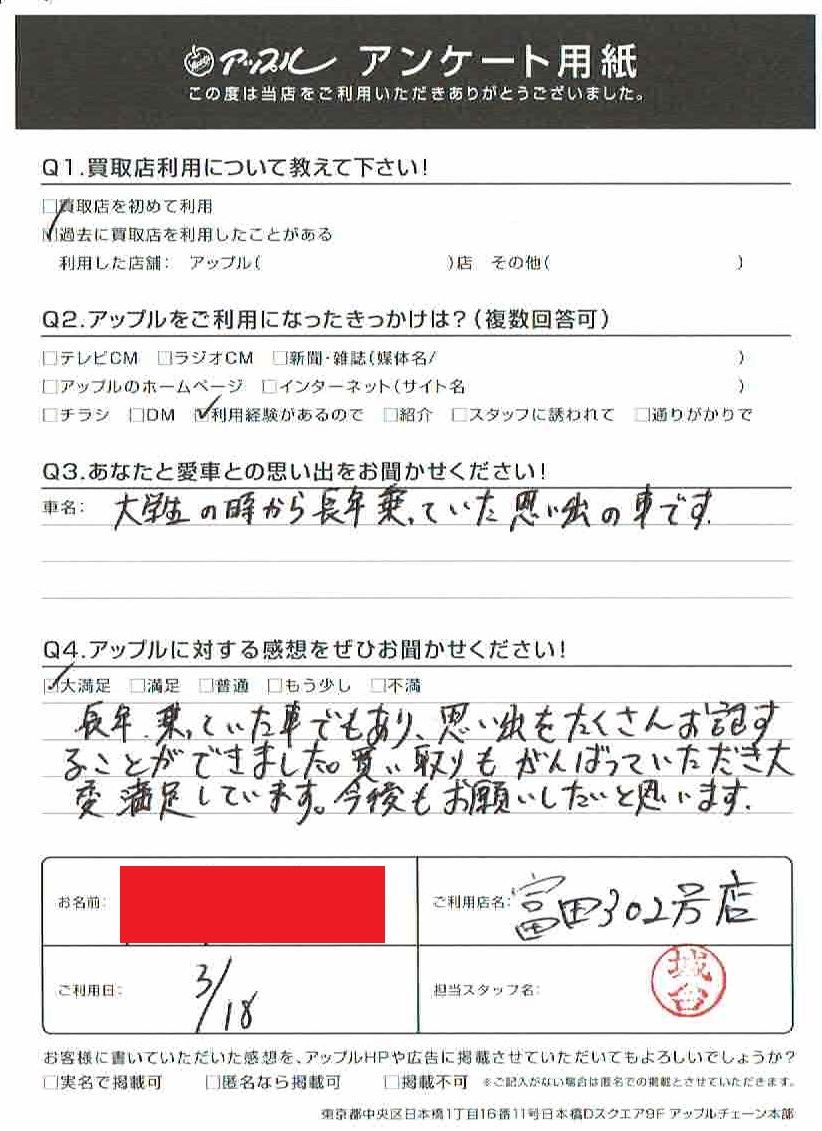 アップル アンケート用紙
この度は当店をご利用いただきありがとうございました。
Q1.買取店利用について教えて下さい!
□買取店を初めて利用
☑過去に買取店を利用したことがある
利用した店舗: アップル( )店 その他( )
Q2.アップルをご利用になったきっかけは?(複数回答可)
□テレビCM □ラジオCM □新聞・雑誌(媒体名/ )
□アップルのホームページ □インターネット(サイト名 )
□チラシ □DM ☑利用経験があるので □紹介 □スタッフに誘われて □通りがかりで
Q3.あなたと愛車との思い出をお聞かせください!
車名: 大学生の時から長年乗っていた思い出の車です.
Q4.アップルに対する感想をぜひお聞かせください!
☑大満足 □満足 □普通 □もう少し □不満
長年、乗っていた車でもあり、思い出をたくさんお話す
ることができました。買い取りもがんばっていただき大
変満足しています。今後もお願いしたいと思います.
お名前:
ご利用店名: 富田302号店
ご利用日: 3/18
担当スタッフ名:
お客様に書いていただいた感想を、アップルHPや広告に掲載させていただいてもよろしいでしょうか?
□実名で掲載可 □匿名なら掲載可 □掲載不可 ※ご記入がない場合は匿名での掲載とさせていただきます。
東京都中央区日本橋1丁目16番11号日本橋Dスクエア9F アップルチェーン本部